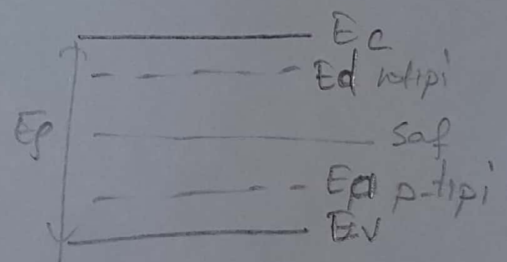 Ec
Ed n-tipi
Eg
saf
Ea p-tipi
Ev